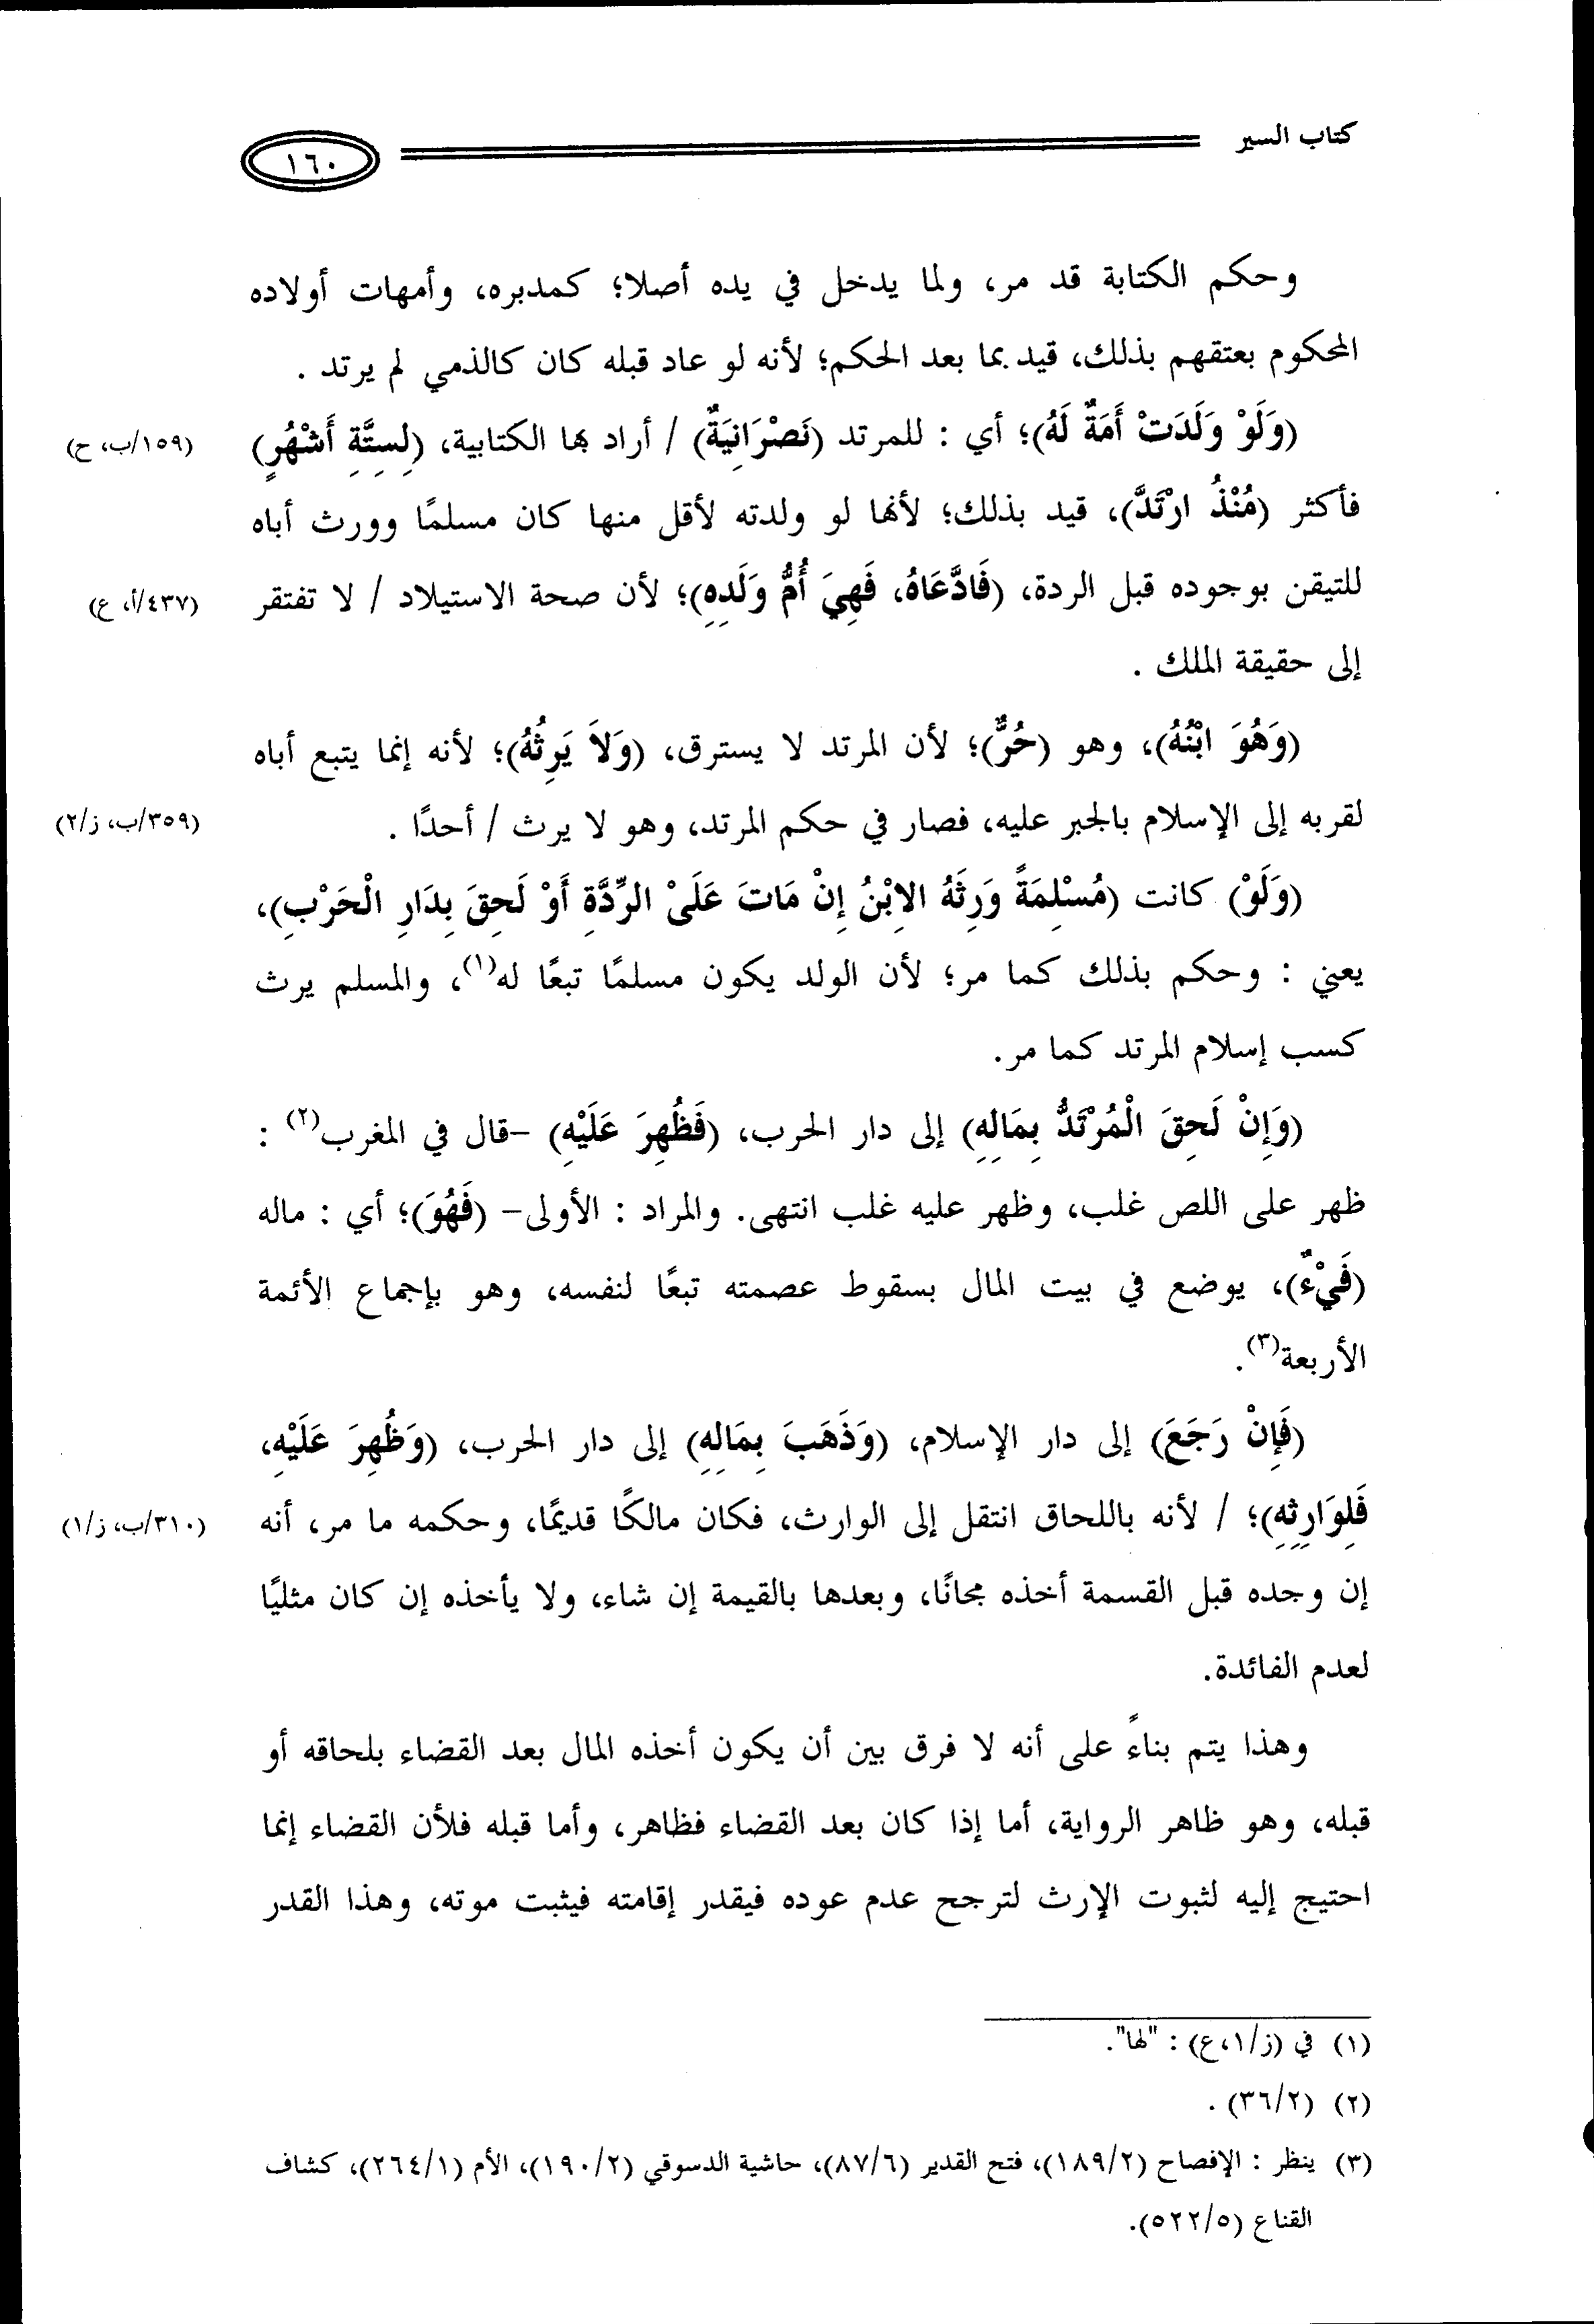 كتاب السير
١٦٠
وحكم الكتابة قد مر، ولما يدخل في يده أصلا؛ كمدبره، وأمهات أولاده
المحكوم بعتقهم بذلك، قيد بما بعد الحكم؛ لأنه لو عاد قبله كان كالذمي لم يرتد .
(وَلَوْ وَلَدَتْ أَمَةٌ لَهُ)؛ أي : للمرتد (نَصْرَانِيَةٌ) / أراد بها الكتابية، (لِسِتَّةِ أَشْهُرٍ) (١٥٩/ب، ح)
فأكثر (مُنْذُ ارْتَدَّ)، قيد بذلك؛ لأنها لو ولدته لأقل منها كان مسلمًا وورث أباه
للتيقن بوجوده قبل الردة، (فَادَّعَاهُ، فَهِيَ أُمُّ وَلَدِهِ)؛ لأن صحة الاستيلاد / لا تفتقر (٤٣٧/أ، ع)
إلى حقيقة الملك .
(وَهُوَ ابْنُهُ)، وهو (حُرٌّ)؛ لأن المرتد لا يسترق، (وَلاَ يَرِثُهُ)؛ لأنه إنما يتبع أباه
لقربه إلى الإسلام بالجبر عليه، فصار في حكم المرتد، وهو لا يرث / أحدًا . (٣٥٩/ب، ز/٢)
(وَلَوْ) كانت (مُسْلِمَةً وَرِثَهُ الِابْنُ إِنْ مَاتَ عَلَىْ الرِّدَّةِ أَوْ لَحِقَ بِدَارِ الْحَرْبِ)،
يعني : وحكم بذلك كما مر؛ لأن الولد يكون مسلمًا تبعًا له(١)، والمسلم يرث
كسب إسلام المرتد كما مر.
(وَإِنْ لَحِقَ الْمُرْتَدُّ بِمَالِهِ) إلى دار الحرب، (فَظُهِرَ عَلَيْهِ) –قال في المغرب(٢) :
ظهر على اللص غلب، وظهر عليه غلب انتهى. والمراد : الأولى– (فَهُوَ)؛ أي : ماله
(فَيْءٌ)، يوضع في بيت المال بسقوط عصمته تبعًا لنفسه، وهو بإجماع الأئمة
الأربعة(٣).
(فَإِنْ رَجَعَ) إلى دار الإسلام، (وَذَهَبَ بِمَالِهِ) إلى دار الحرب، (وَظُهِرَ عَلَيْهِ،
فَلِوَارِثِهِ)؛ / لأنه باللحاق انتقل إلى الوارث، فكان مالكًا قديمًا، وحكمه ما مر، أنه (٣١٠/ب، ز/١)
إن وجده قبل القسمة أخذه مجانًا، وبعدها بالقيمة إن شاء، ولا يأخذه إن كان مثليًا
لعدم الفائدة.
وهذا يتم بناءً على أنه لا فرق بين أن يكون أخذه المال بعد القضاء بلحاقه أو
قبله، وهو ظاهر الرواية، أما إذا كان بعد القضاء فظاهر، وأما قبله فلأن القضاء إنما
احتيج إليه لثبوت الإرث لترجح عدم عوده فيقدر إقامته فيثبت موته، وهذا القدر
(١) في (ز/١،ع) : "لها".
(٢) (٣٦/٢) .
(٣) ينظر : الإفصاح (١٨٩/٢)، فتح القدير (٨٧/٦)، حاشية الدسوقي (١٩٠/٢)، الأم (٢٦٤/١)، كشاف
القناع (٥٢٢/٥).